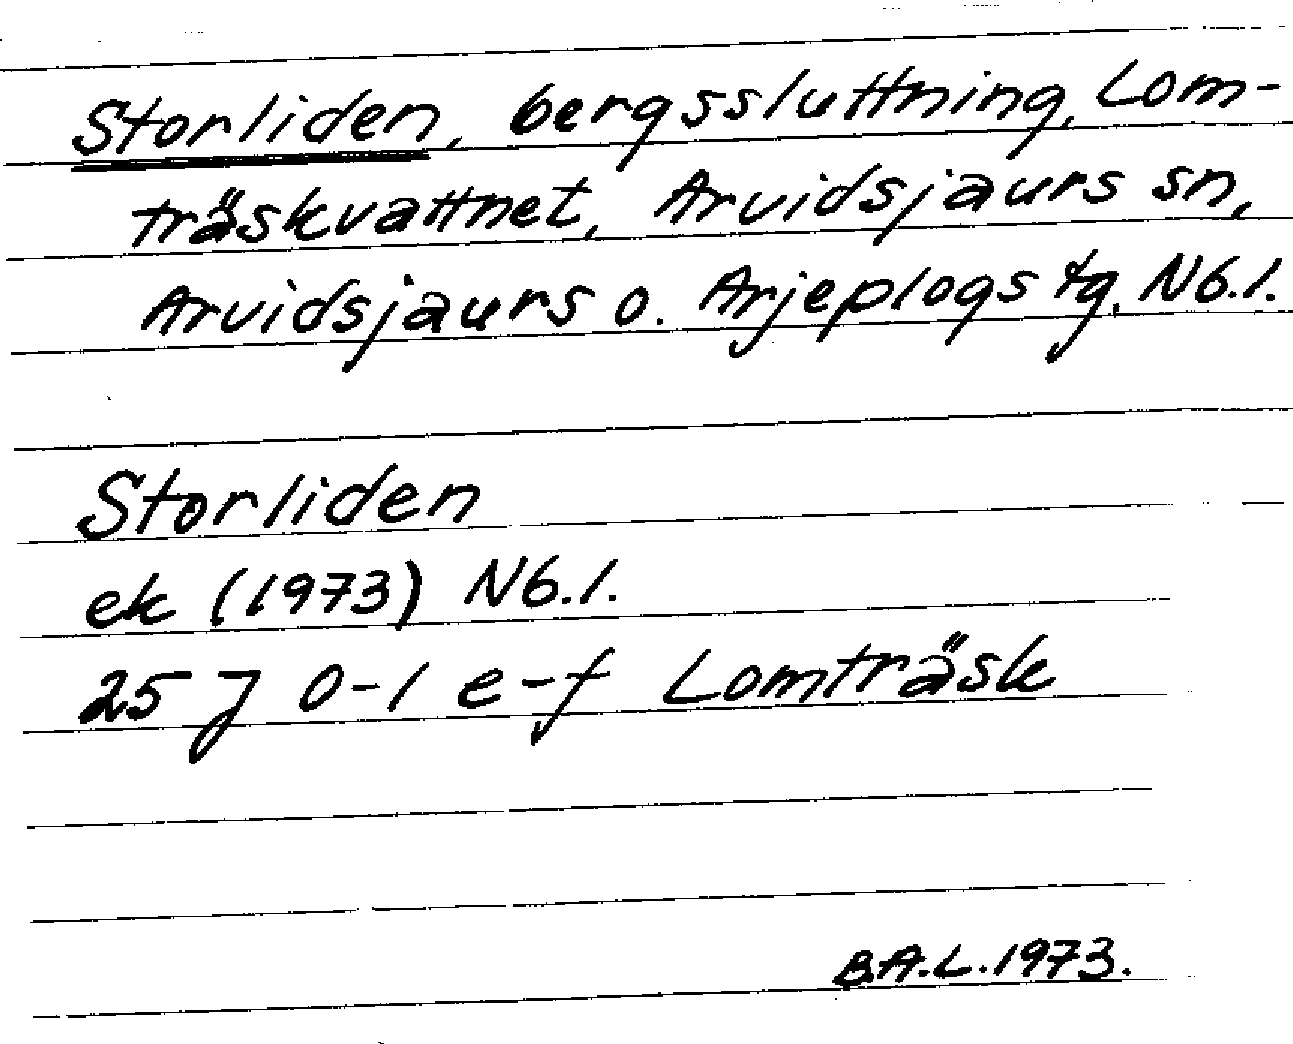 Storliden, bergssluttning, Lom-
träskvattnet, Arvidsjaurs sn,
Arvidsjaurs o. Arjeplogs tg, Nb.l.
Storliden
ek (1973) Nb.l.
25 J 0-1 e-f Lomträsk
B.A.L. 1973.